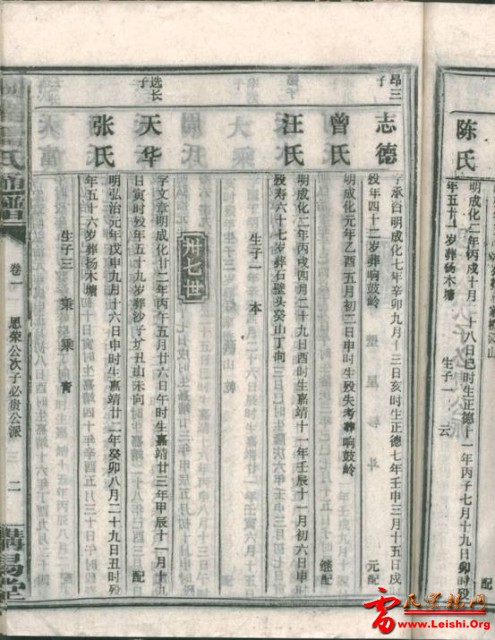 陈氏
明成化二年丙戌十月 十八日巳时生正德十一年丙子七月十九日卯时殁 配
年五十一岁葬杨木塘 生子一 云
昂三子
志德
字承启明成化七年辛卯九月十三日亥时生正德七年壬申三月十五日戌
殁年四十二岁葬响鼓岭 元配
曾氏
明成化元年乙酉五月初二日申时生殁失考葬响鼓岭
继配
汪氏
明成化二年丙戌四月二十九日酉时生嘉靖十一年壬辰十一月初六日申
殁寿六十七岁葬石壁头癸山丁向
生子一 本
卅七世
选长子
天华
字文 明成化廿二年丙午五月廿六日午时生嘉靖廿三年甲辰十一月十九
日寅时殁年五十九岁葬沙子圹丑山未向 配
张氏
明弘治元年戊申九月十六日申时生嘉靖廿二年癸卯八月二十九日丑时殁
年五十六岁葬杨木塘
生子三 乘 乘
氏
卷一 恩荣公次子必贵公派 二
雷氏宗谱网
www.Leishi.Org